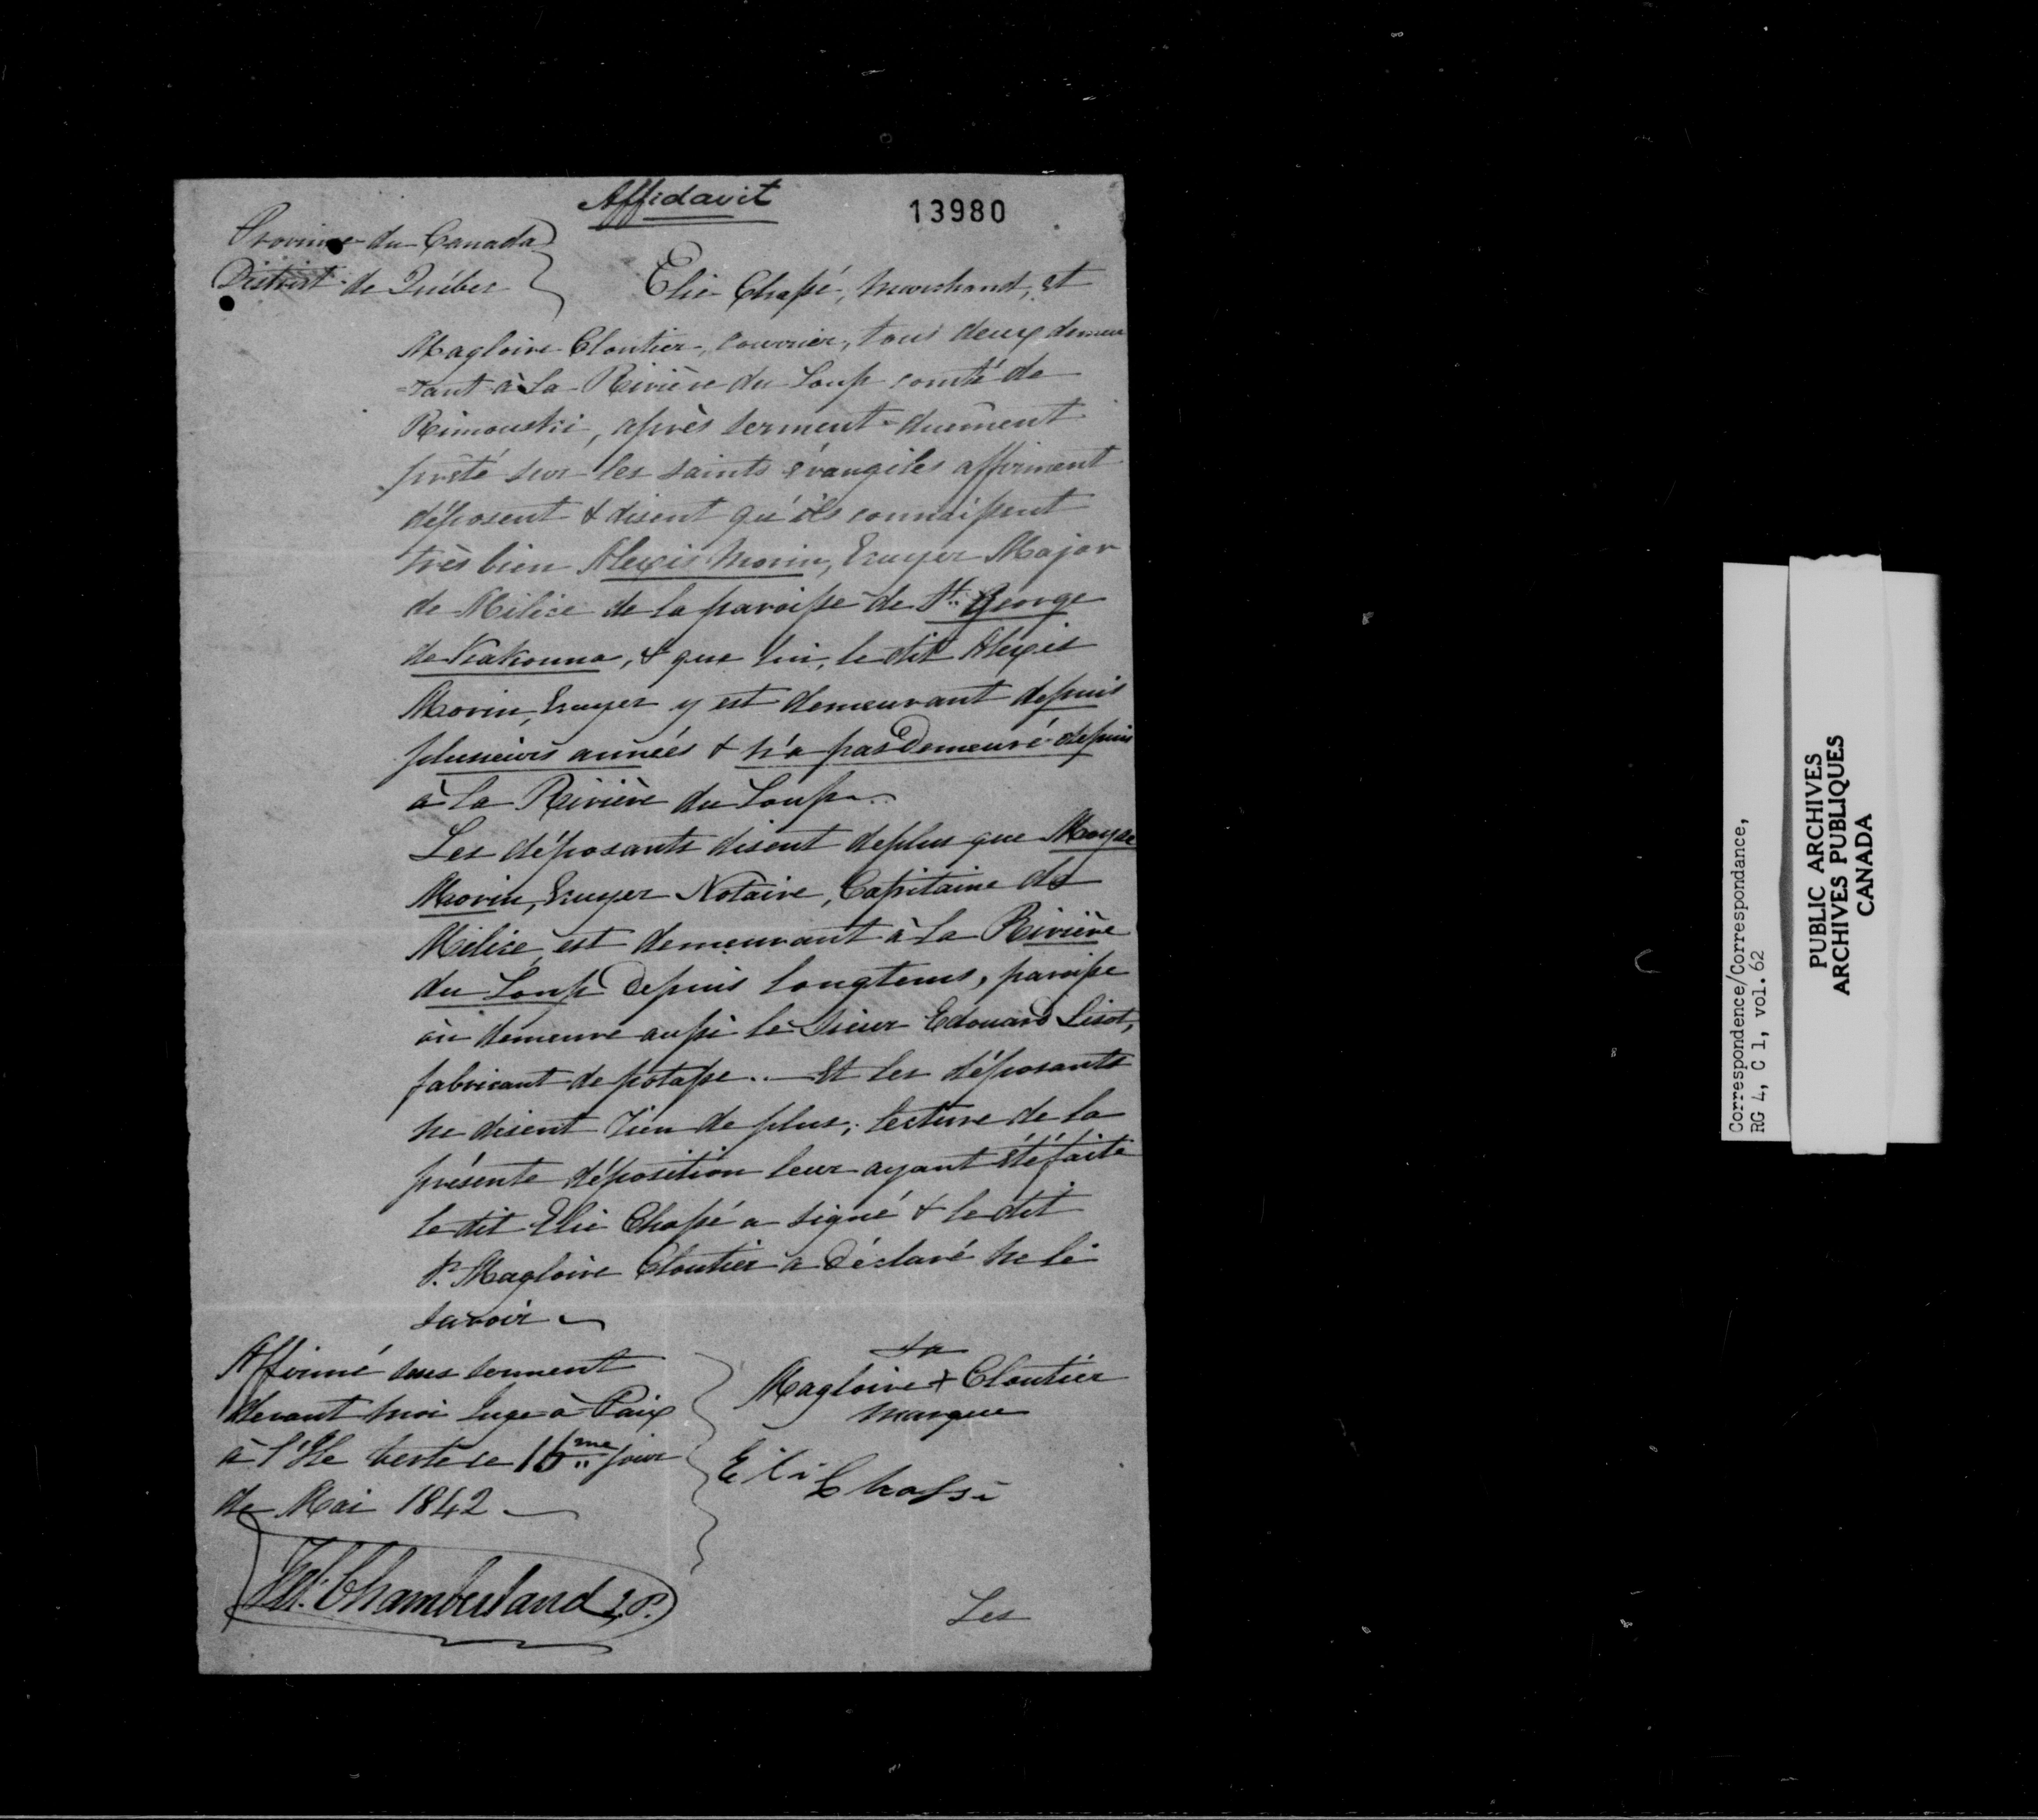 Affidavit
13980
Province du Canada
District de Québec
Elie Chassé, Marchand, et
Magloire Cloutier, courrier, tous deux demeu
=rant à La Rivière du Loup comté de
Rimouski, après serment duement
prêté sur les saints évangiles afferment
déposent & disent qu'ils connaissent
très bien Alexis Morin, Ecuyer Major
de Milice de la paroisse de St. George
de Kakouna, & que lui, le dit Alexis
Morin, Ecuyer y est demeurant depuis
plusieurs années & n'a pas demeuré depuis
à la Rivière du Loup.
Les déposants disent deplus que Moyse
Morin, Ecuyer Notaire, Capitaine de
Milice, est demeurant à la Rivière
du Loup depuis longtems, paroisse
où demeure aussi le Sieur Edouard Lisot,
fabricant de potasse. — Et les déposants
ne disent rien de plus; lecture de la
présente déposition leur ayant été faite
le dit Elie Chassé a signé & le dit
Sr. Magloire Cloutier a déclaré ne le
savoir
Affirmé sous serment
devant moi Juge à Paix
à l'Ile verte ce 16me jour
de Mai 1842
sa
Magloire + Cloutier
marque
Eli Chassé
Chamberland J.P.
Les
Correspondence/Correspondance,
RG 4, C 1, vol. 62
PUBLIC ARCHIVES
ARCHIVES PUBLIQUES
CANADA